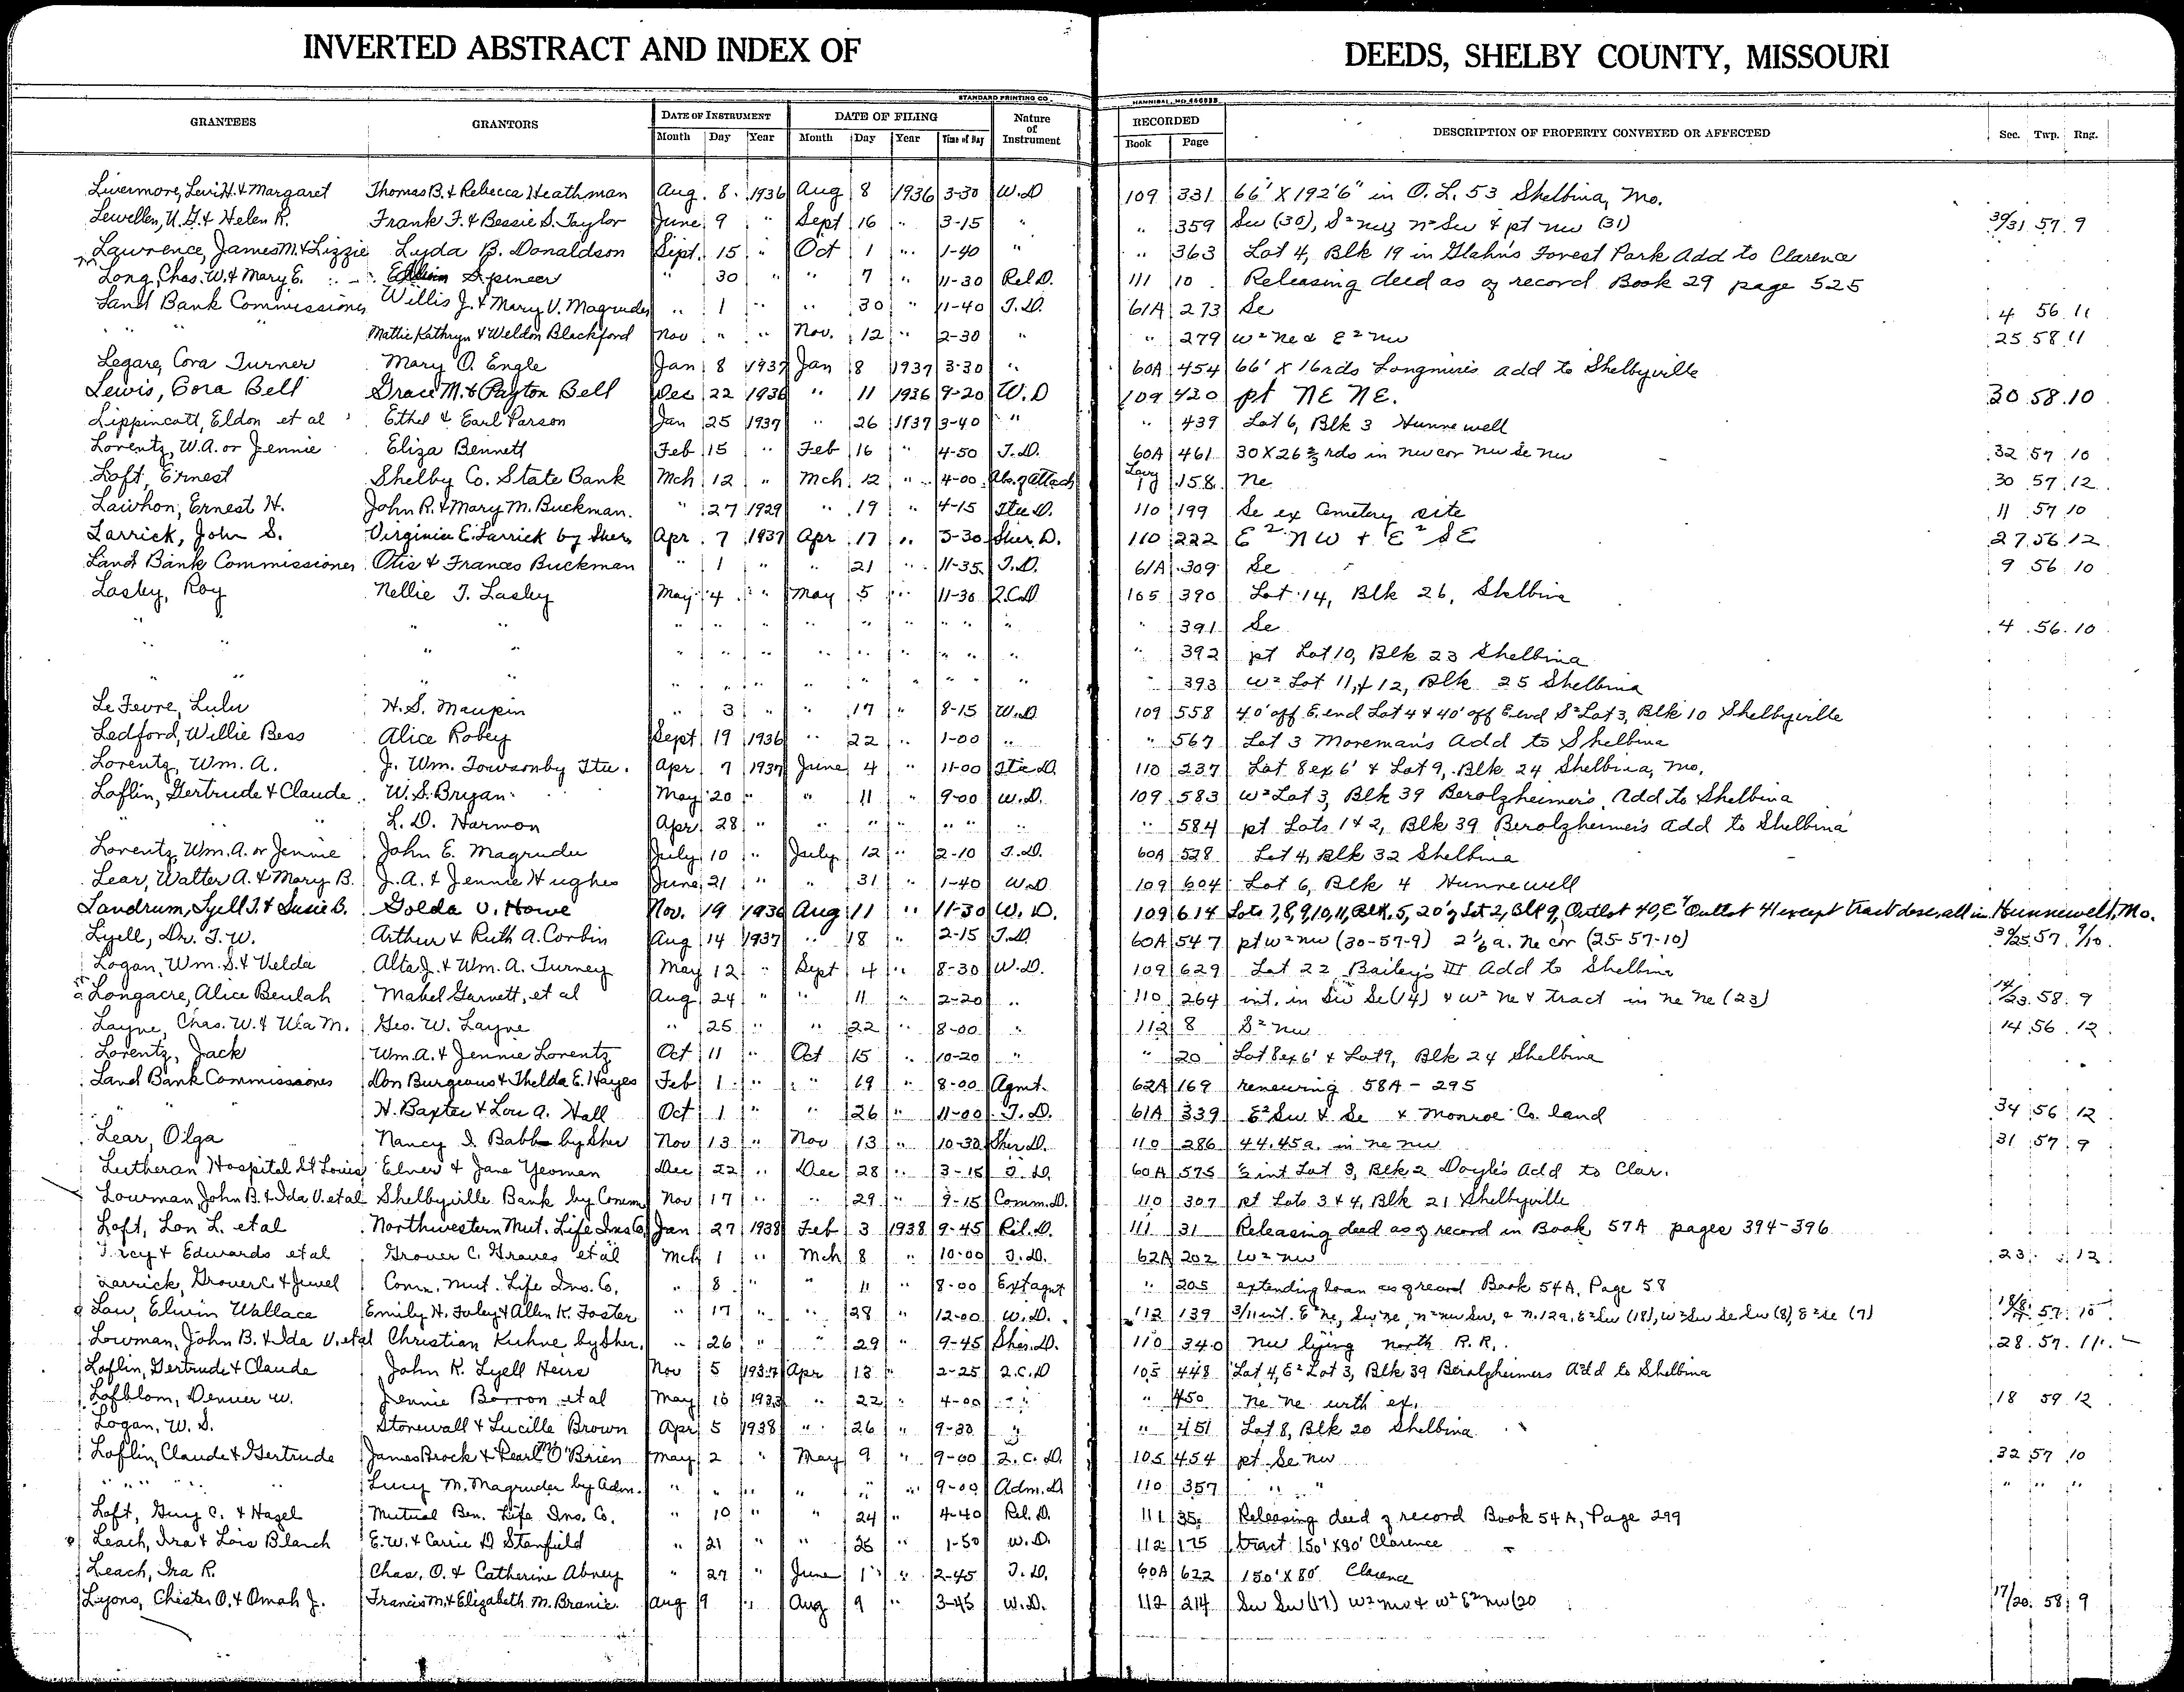 INVERTED ABSTRACT AND INDEX OF DEEDS, SHELBY COUNTY, MISSOURI
STANDARD PRINTING CO. HANNIBAL, MO.
GRANTEES GRANTORS DATE OF INSTRUMENT DATE OF FILING Nature of Instrument RECORDED DESCRIPTION OF PROPERTY CONVEYED OR AFFECTED Sec. Twp. Rng.
Month Day Year Month Day Year Time of Day Book Page
Livermore, Levi H. & Margaret Thomas B. & Rebecca Heathman Aug. 8. 1936 Aug 8 1936 3-30 W.D 109 331 66' X 192'6" in O.L. 53 Shelbina, Mo.
Lewellen, U.G. & Helen R. Frank F. & Bessie S. Taylor June 9 " Sept 16 " 3-15 " " 359 Sw (30), S² nw, n² Sw & pt nw (31) 30/31 57 9
Lawrence, James M. & Lizzie Lyda B. Donaldson Sept. 15 " Oct 1 " 1-40 " " 363 Lot 4, Blk 19 in Glahn's Forest Park Add to Clarence
Long, Chas. W. & Mary E. Spencer " 30 " " 7 " 11-30 Rel D. 111 10 Releasing deed as of record Book 29 page 525
Land Bank Commissioner Willis J. & Mary V. Magruder " 1 " " 30 " 11-40 T.D. 61A 273 Se 4 56 11
" " " Mattie Kathryn & Weldon Blackford Nov " " Nov. 12 " 2-30 " " 279 W² ne & E² nw 25 58 11
Legare, Cora Turner Mary O. Engle Jan 8 1937 Jan 8 1937 3-30 " 60A 454 66' X 16rds Longmire's add to Shelbyville
Lewis, Cora Bell Grace M. & Payton Bell Dec 22 1936 " 11 1936 9-20 W.D 109 420 pt NE NE. 30 58 10
Lippincott, Eldon et al Ethel & Earl Parson Jan 25 1937 " 26 1937 3-40 " " 439 Lot 6, Blk 3 Hunnewell
Lorentz, W.A. or Jennie Eliza Bennett Feb 15 " Feb 16 " 4-50 T.D. 60A 461 30 X 26⅔ rds in nw cor nw se nw 32 57 10
Loft, Ernest Shelby Co. State Bank Mch 12 " Mch 12 " 4-00 Abs. of Attach Levy 158 ne 30 57 12
Lawhon, Ernest H. John R. & Mary M. Buckman. " 27 1929 " 19 " 4-15 Stee D. 110 199 Se ex Cemetery site 11 57 10
Larrick, John S. Virginia E. Larrick by Sher. Apr. 7 1937 Apr 17 " 3-30 Sher. D. 110 222 E² NW + E² SE 27 56 12
Land Bank Commissioner Otis & Frances Buckman " 1 " " 21 " 11-35 T.D. 61A 309 Se 9 56 10
Lasley, Roy Nellie T. Lasley May 4 " May 5 " 11-30 2.C.D 105 390 Lot 14, Blk 26, Shelbina
" " " " " " " " " " " " " 391 Se 4 56 10
" " " " " " " " " " " " " 392 pt Lot 10, Blk 23 Shelbina
" " " " " " " " " " " " " 393 W² Lot 11, & 12, Blk 25 Shelbina
Le Fevre, Lulu H.S. Maupin " 3 " " 17 " 8-15 W.D 109 558 40' off E. end Lot 4 & 40' off E end S² Lot 3, Blk 10 Shelbyville
Ledford, Willie Bess Alice Robey Sept 19 1936 " 22 " 1-00 " " 567 Lot 3 Moreman's Add to Shelbina
Lorentz, Wm. A. J. Wm. Towson by Stu. Apr 7 1937 June 4 " 11-00 Stee D. 110 237 Lot 8 ex 6' & Lot 9, Blk 24 Shelbina, Mo.
Laflin, Gertrude & Claude W.S. Bryan May 20 " " 11 " 9-00 W.D. 109 583 W² Lot 3, Blk 39 Berolzheimer's Add to Shelbina
" " L. D. Harmon Apr 28 " " " " " " " " 584 pt Lots 1 & 2, Blk 39 Berolzheimer's Add to Shelbina
Lorentz, Wm. A. or Jennie John E. Magruder July 10 " July 12 " 2-10 T.D. 60A 528 Lot 4, Blk 32 Shelbina
Lear, Walter A. & Mary B. J.A. & Jennie Hughes June 21 " " 31 " 1-40 W.D 109 604 Lot 6, Blk 4 Hunnewell
Landrum, Lyell T. & Susie B. Golda V. Howe Nov. 19 1936 Aug 11 " 11-30 W.D. 109 614 Lots 7,8,9,10,11, Blk. 5, 20' of Lot 2, Blk 9, Outlot 40, E" Outlot 41 except tract desc, all in Hunnewell, Mo.
Lyell, Dr. T.W. Arthur & Ruth A. Corbin Aug 14 1937 " 18 " 2-15 T.D 60A 547 pt w² nw (30-57-9) 2⅙ a. ne cor (25-57-10) 30/25 57 9/10
Logan, Wm. S. & Velda Alta J. & Wm. A. Turney May 12 " Sept 4 " 8-30 W.D. 109 629 Lot 22 Bailey's III Add to Shelbina
Longacre, Alice Beulah Mabel Garnett, et al Aug 24 " " 11 " 2-20 " 110 264 int. in Sw Se (14) & W² ne & tract in ne ne (23) 14/23 58 9
Layne, Chas. W. & Via M. Geo. W. Layne " 25 " " 22 " 8-00 " 112 8 S² nw 14 56 12
Lorentz, Jack Wm. A. & Jennie Lorentz Oct 11 " Oct 15 " 10-20 " " 20 Lot 8 ex 6' & Lot 9, Blk 24 Shelbina
Land Bank Commissioner Don Burgeous & Thelda E. Hayes Feb 1 " " 19 " 8-00 Agmt. 62A 169 renewing 58A - 295
" " H. Baxter & Lou A. Hall Oct 1 " " 26 " 11-00 T.D. 61A 339 E² Sw & Se & Monroe Co. land 34 56 12
Lear, Olga Nancy S. Babb by Sher Nov 13 " Nov 13 " 10-30 Sher D. 110 286 44.45a. in ne nw 31 57 9
Lutheran Hospital St Louis Elmer & Jane Yeoman Dec 22 " Dec 28 " 3-15 T.D. 60A 575 ½ int Lot 3, Blk 2 Doyle's Add to Clar.
Lowman, John B. & Ida V. et al Shelbyville Bank by Comm Nov 17 " " 29 " 9-15 Comm. D. 110 307 pt Lots 3 & 4, Blk 21 Shelbyville
Loft, Lon L. et al Northwestern Mut. Life Ins Co. Jan 27 1938 Feb 3 1938 9-45 Rel. D. 111 31 Releasing deed as of record in Book 57A pages 394-396
& Edwards et al Grover C. Graves et al Mch 1 " Mch 8 " 10-00 T.D. 62A 202 W² nw 23 12
Larrick, Grover C. & Jewel Conn. Mut. Life Ins. Co. " 8 " " 11 " 8-00 Ext agmt " 205 extending loan as of record Book 54A, Page 58
Law, Elwin Wallace Emily H. Foley & Allen K. Foster " 17 " " 28 " 12-00 W.D. 112 139 3/11 int. E² ne, Sw ne, n² nw Sw, & n. 12a. E² Sw (18), W² Sw Se Sw (8), E² Se (7) 57 10
Lowman, John B. & Ida V. et al Christian Kuhne by Sher. " 26 " " 29 " 9-45 Sher. D. 110 340 nw lying north R.R. 28 57 11
Laflin, Gertrude & Claude John R. Lyell Heirs Nov 5 1937 Apr 13 " 2-25 2.C.D 105 448 Lot 4, E² Lot 3, Blk 39 Berolzheimers Add to Shelbina
Lofblom, Denver W. Jennie Barron et al May 10 1933 " 22 " 4-00 " " 450 ne ne with ex. 18 59 12
Logan, W. S. Stonewall & Lucille Brown Apr 5 1938 " 26 " 9-30 " " 451 Lot 8, Blk 20 Shelbina
Laflin, Claude & Gertrude James Brock & Pearl M. O'Brien May 2 " May 9 " 9-00 2.C.D. 105 454 pt Se nw 32 57 10
" " " " Lucy M. Magruder by Adm. " " " " " " 9-00 Adm. D 110 357 " " " " " "
Loft, Guy C. & Hazel Mutual Ben. Life Ins. Co. " 10 " " 24 " 4-40 Rel. D. 111 35 Releasing deed of record Book 54A, Page 299
Leach, Ira & Lois Blanch E.W. & Carrie D Stanfield " 21 " " 26 " 1-50 W.D. 112 175 tract 150' X 80' Clarence
Leach, Ira R. Chas. O. & Catherine Abney " 27 " June 1 " 2-45 T.D. 60A 622 150' X 80' Clarence
Lyons, Chester O. & Omah J. Francis M. & Elizabeth M. Branic. Aug 9 " Aug 9 " 3-45 W.D. 112 214 Sw Sw (17) W² nw & W² E² nw (20 17/20 58 9